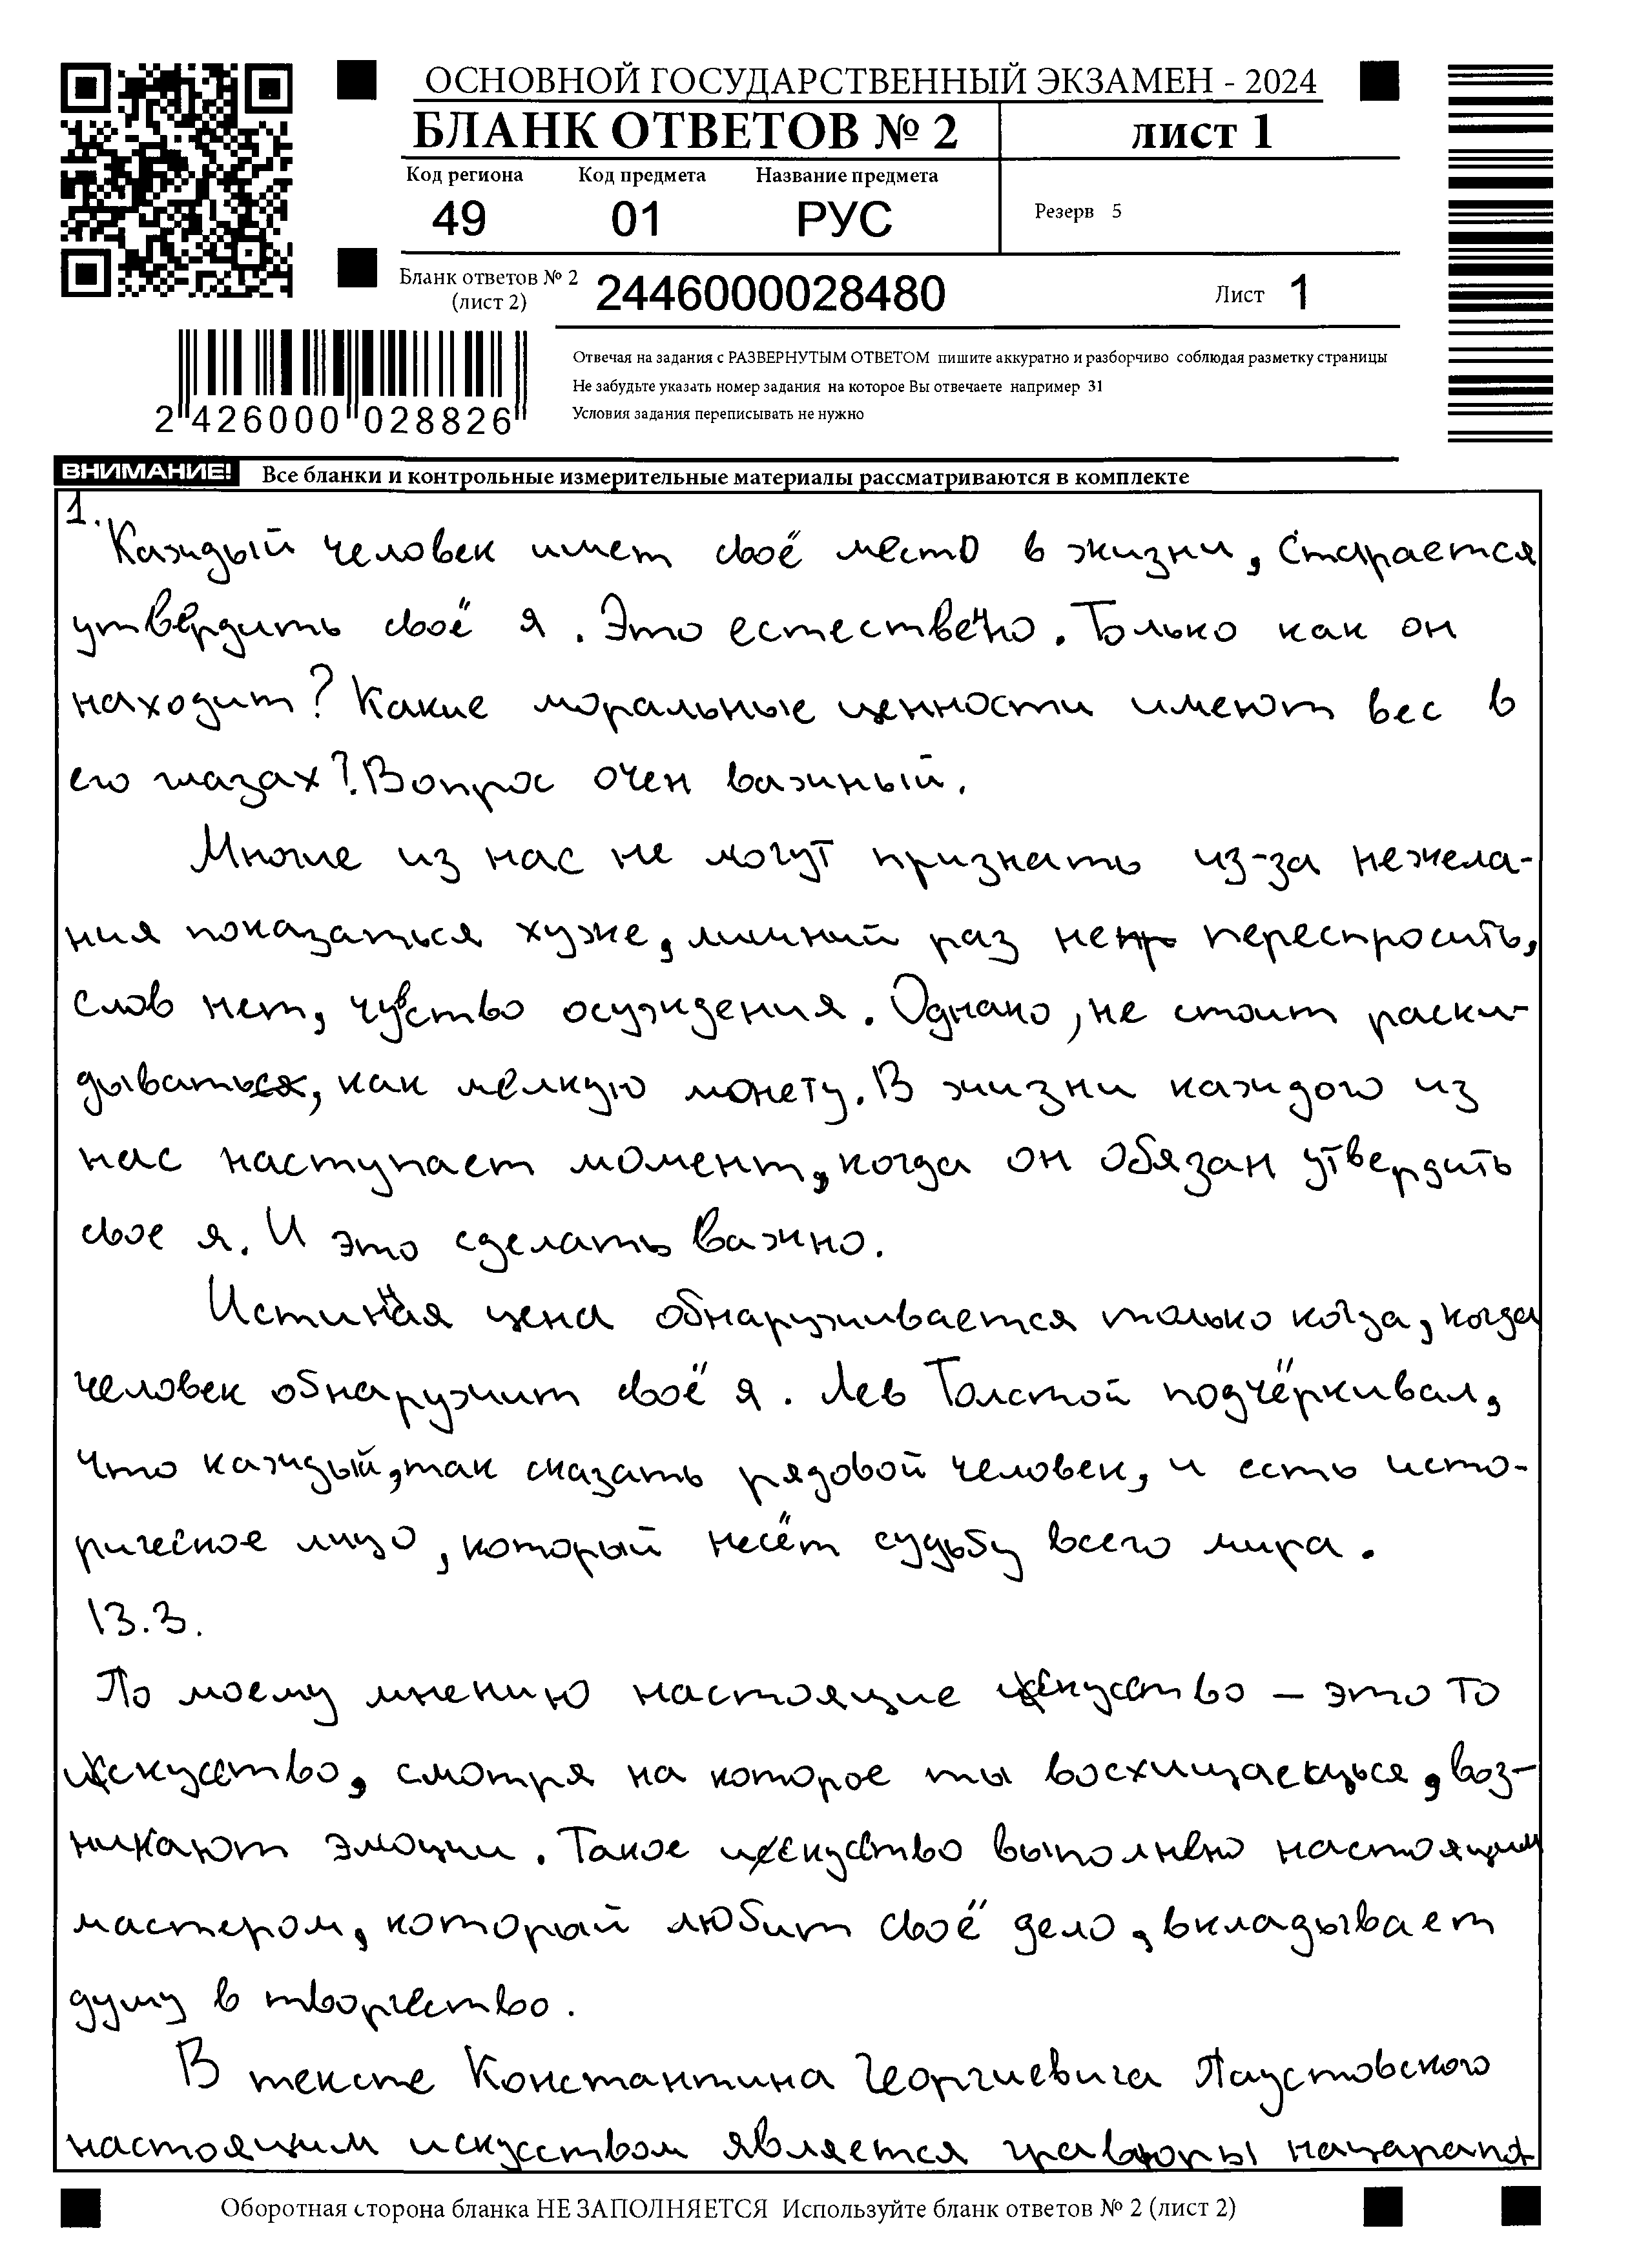 ОСНОВНОЙ ГОСУДАРСТВЕННЫЙ ЭКЗАМЕН - 2024
БЛАНК ОТВЕТОВ № 2 лист 1
Код региона Код предмета Название предмета
49 01 РУС Резерв 5
Бланк ответов № 2 (лист 2) 2446000028480 Лист 1
Отвечая на задания с РАЗВЕРНУТЫМ ОТВЕТОМ пишите аккуратно и разборчиво соблюдая разметку страницы
Не забудьте указать номер задания на которое Вы отвечаете например 31
Условия задания переписывать не нужно
2 426000 028826
ВНИМАНИЕ! Все бланки и контрольные измерительные материалы рассматриваются в комплекте
1.
Каждый человек имет своё место в жизни, старается
утвердить своё я. Это естествено. Только как он
находит? Какие моральные ценности имеют вес в
его глазах?. Вопрос очен важный.
Многие из нас не могут признать из-за нежела-
ния показаться хуже, лишний раз не переспросить,
слов нет, чувство осуждения. Однако, не стоит раски-
дывать, как мелкую монету. В жизни каждого из
нас наступает момент, когда он обязан утвердить
свое я. И это сделать важно.
Истинная цена обнаруживается только когда, когда
человек обнаружит своё я. Лев Толстой подчёркивал,
что каждый, так сказать рядовой человек, и есть исто-
рическое лицо, который несёт судьбу всего мира.
13.3.
По моему мнению настоящие искусство – это то
искусство, смотря на которое ты восхищаешься, воз-
никают эмоции. Такое искусство выполнено настоящим
мастером, который любит своё дело, вкладывает
душу в творчество.
В тексте Константина Георгиевича Паустовского
настоящим искусством является гравюры
Оборотная сторона бланка НЕ ЗАПОЛНЯЕТСЯ Используйте бланк ответов № 2 (лист 2)